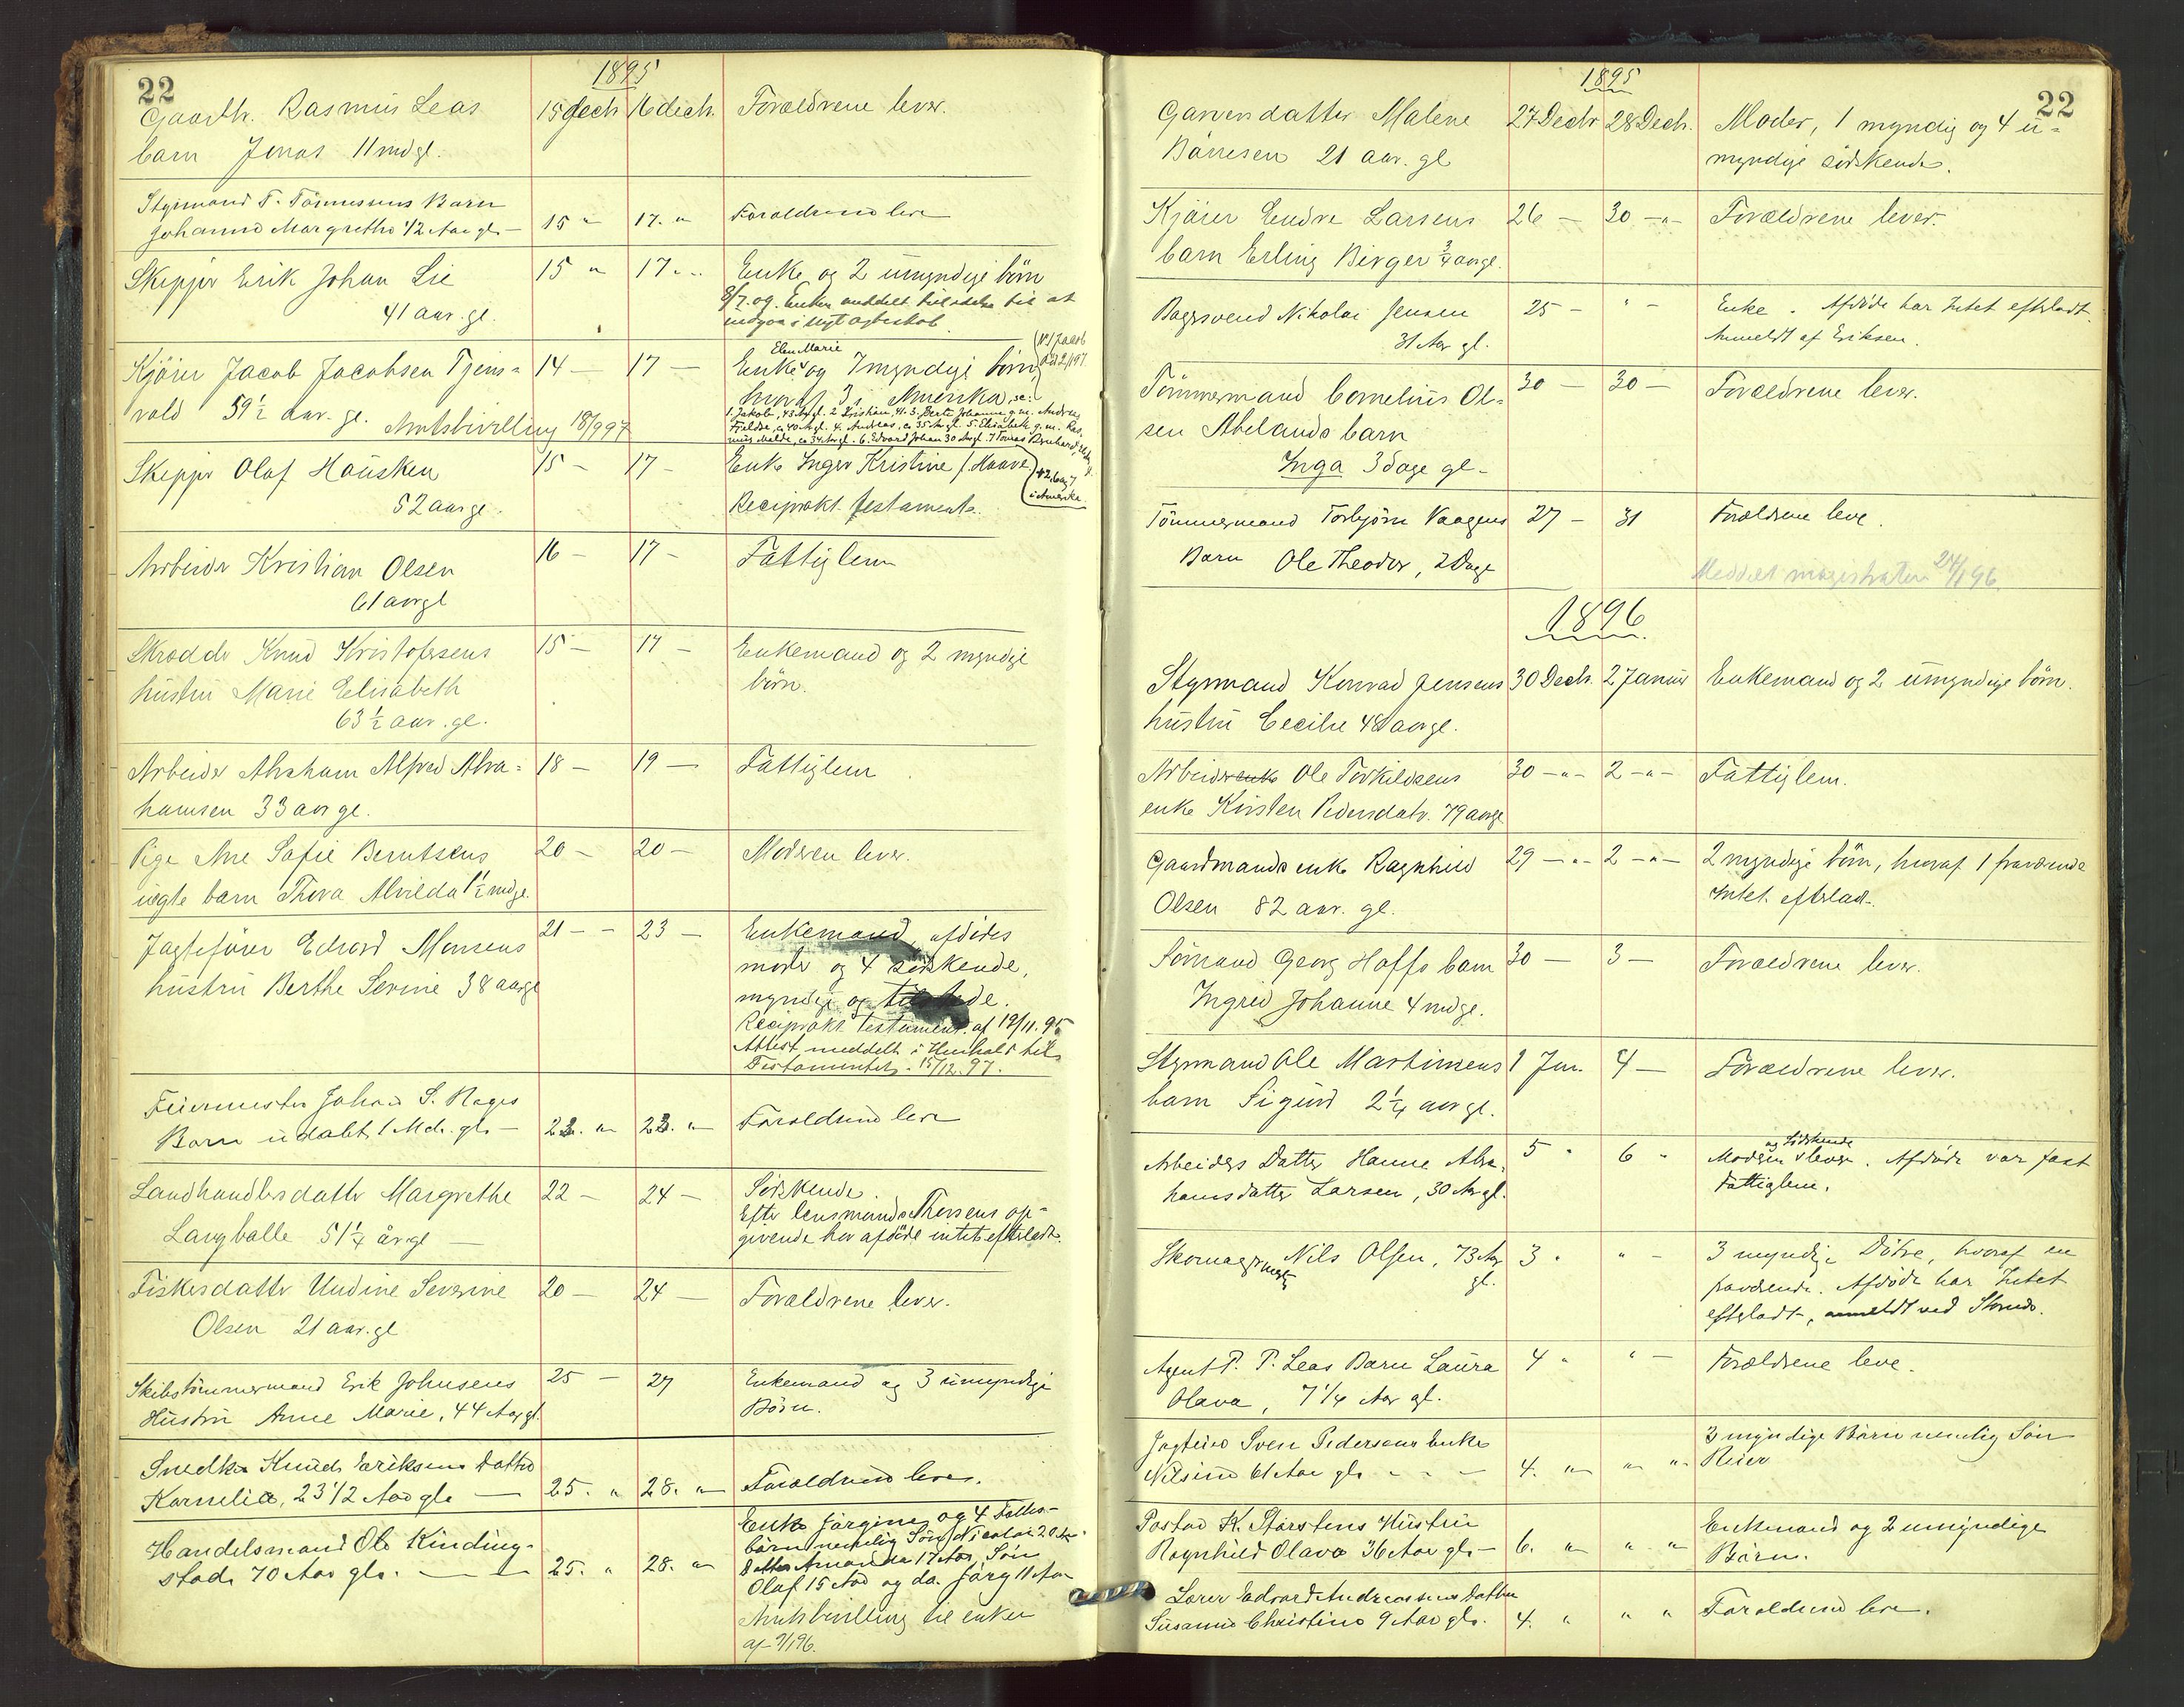 22
1895
Gaardbr. Rasmus Leas 15 Decb 16 decb. Forældrene lever.
barn Jonas 11 md gl.
Styrmand T. Tönnessens Barn
Johanne Margrethe 1/2 Aar gl. — 15 " 17. " Forældrene leve
Skipper Erik Johan Lie 15 " 17 " Enke og 2 umyndige börn
41 aar. gl. 8/7. 09. Enken meddelt tilladelse til at
indgaa i nyt ægteskab
Kjörer Jacob Jacobsen Tjens= 14 — 17 — Enke Elen Marie og 7 myndige börn,
vold 59 1/2 aar. gl. Amtsbevilling 18/9 97 hvoraf 3 i Amerika, se:
1. Jakob, 43 Aar gl. 2 Kristian, 41. 3. Berte Johanne g.m. Andreas
Fjelde, ca 40 Aar gl. 4. Andreas, ca 35 Aar gl. 5. Elisabeth g.m. Ras,
mus Malde, ca 34 Aar gl. 6. Edvard Johan 30 Aar gl. 7 Tomas Bernhard
Skipper Olaf Hausken 15 — 17 — Enke Inger Kristine f. Haave
52 aar gl. Reciprokt testamente.
i Amerika
Arbeider Kristian Olsen 16 — 17 — Fattiglem
61 aar gl
Skrædder Knud Kristofersens 15 — 17 — Enkemand og 2 myndige
hustru Marie Elisabeth börn.
63 1/2 aar. gl.
Arbeider Abraham Alfred Abra= 18 — 19 — Fattiglem
hamsen 33 aar gl.
Pige Ane Sofie Berntsens 20 — 20 — Moderen lever.
uægte barn Thora Alvilda 1 1/2 md gl.
Jagtefører Edvard Monsens 21 — 23 — Enkemand, afdödes
hustru Berthe Serine 38 aar gl moder og 4 söskende,
myndige og tilstede.
Reciprokt testament af 19/11. 95
Attest meddelt i Henhold til
Testamentet. 15/12. 97.
Feiermester Johan S. Rages
Barn udöbt, 1 Md. gl. — 22. " 23. " Forældrene leve
Landhandlerdatter Margrethe 22 — 24 — Söskende.
Langballe 51 1/4 år gl — Efter lensmand Thersens op=
givende har afdöde intet efterladt.
Fiskerdatter Undine Severine 20 — 24 — Forældrene lever.
Olsen 21 aar. gl
Skibstömmermand Erik Johnsens 25 — 27 Enkemand og 3 umyndige
Hustru Anne Marie, 44 Aar gl. Börn.
Snedker Knud Eriksens Datter
Kornelia, 23 1/2 Aar gl. — 25. " 28. " Forældrene lever.
Handelsmand Ole Kinding= Enke Jörgine, og 4 Fælles=
stad, 70 Aar gl. — 25. " 28. " börn nemlig Sön Nicolai 20 Aar
Datter Amanda 17 Aar, Sön
Olaf 15 Aar og do. Jörg 11 Aar
Amtsbevilling til enken
af 9/1 96.
22
1895
Garverdatter Malene 27 Decbr 28 Decb. Moder, 1 myndig og 4 u=
Börresen 21 aar. gl myndige södskende.
Kjörer Endre Larsens 26 — 30 —"— Forældrene lever.
barn Erling Birger 3/4 aar gl.
Bagersvend Nikolai Jensen 25 — " — Enke. Afdöde har Intet efterladt.
31 Aar gl. Anmeldt af Eriksen.
Tömmermand Cornelius Ol= 30 — 30 — Forældrene lever.
sen Abelands barn
Inga 3 dage gl —
Tömmermand Torbjörn Vaagens 27 — 31 Forældrene leve.
Barn Ole Theodor, 2 Dage
Meddelt magistraten 24/1 96.
1896
Styrmand Konrad Jensens 30 Decb. 2 Januar Enkemand og 2 umyndige börn.
hustru Cecilie 48 aar gl.
Arbeiderenke Ole Torkildsens 30 —"— 2 —"— Fattiglem.
enke Kirsten Pedersdatr. 79 aar gl
Gaardmands enke Ragnhild 29 —"— 2 —"— 2 myndige börn, hvoraf 1 fraværende
Olsen 82 aar. gl. Intet efterladt.
Sömand Georg Hoffs barn 30 — 3 — Forældrene lever.
Ingrid Johanne 4 md gl.
Styrmand Ole Martinsens 1 Jan. 4 — Forældrene lever.
barn Sigurd 2 1/4 aar gl.
Arbeiders Datter Hanne Abra, 5 " 6 " Moderen og Södskende lever. Afdöde var fast
hamsdatter Larsen, 30 Aar gl. Fattiglem.
Skomagermester Nils Olsen, 73 Aar 3 " " — 3 myndige Dötre, hvoraf en
gl. fraværende. Afdöde har Intet
efterladt, anmeldt ved Strand.
Agent P. P. Leas Barn Laura 4 " " — Forældrene leve.
Olava, 7 1/4 Aar gl.
Jagteier Sven Pedersens Enke 3 myndige Börn nemlig Sön
Nilsine 61 Aar gl. — 4. " " " Reier
Postbud K. Storstens Hustru Enkemand og 2 umyndige
Ragnhild Olava 36 Aar gl. — 6. " " " Börn.
Lærer Edvard Andreassens Datter
Susanne Christine 9 Aar gl. 4. " " " Forældrene leve.